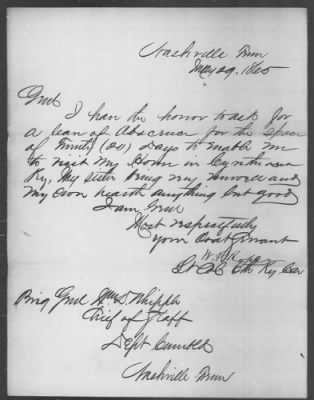 Nashville Tenn
May 29. 1865
Genl
I have the honor to ask for
a leave of Abscence for the space
of Twenty (20) Days to enable me
to visit my Home in Cynthiana
Ky, My sister being very unwell and
my own health anything but good
I am Genl
Most respectfully
your Obdt Servant
Lt Ky Cav
Brig Genl Wm D. Whipple
Chief of Staff
Dept Cumbld
Nashville Tenn